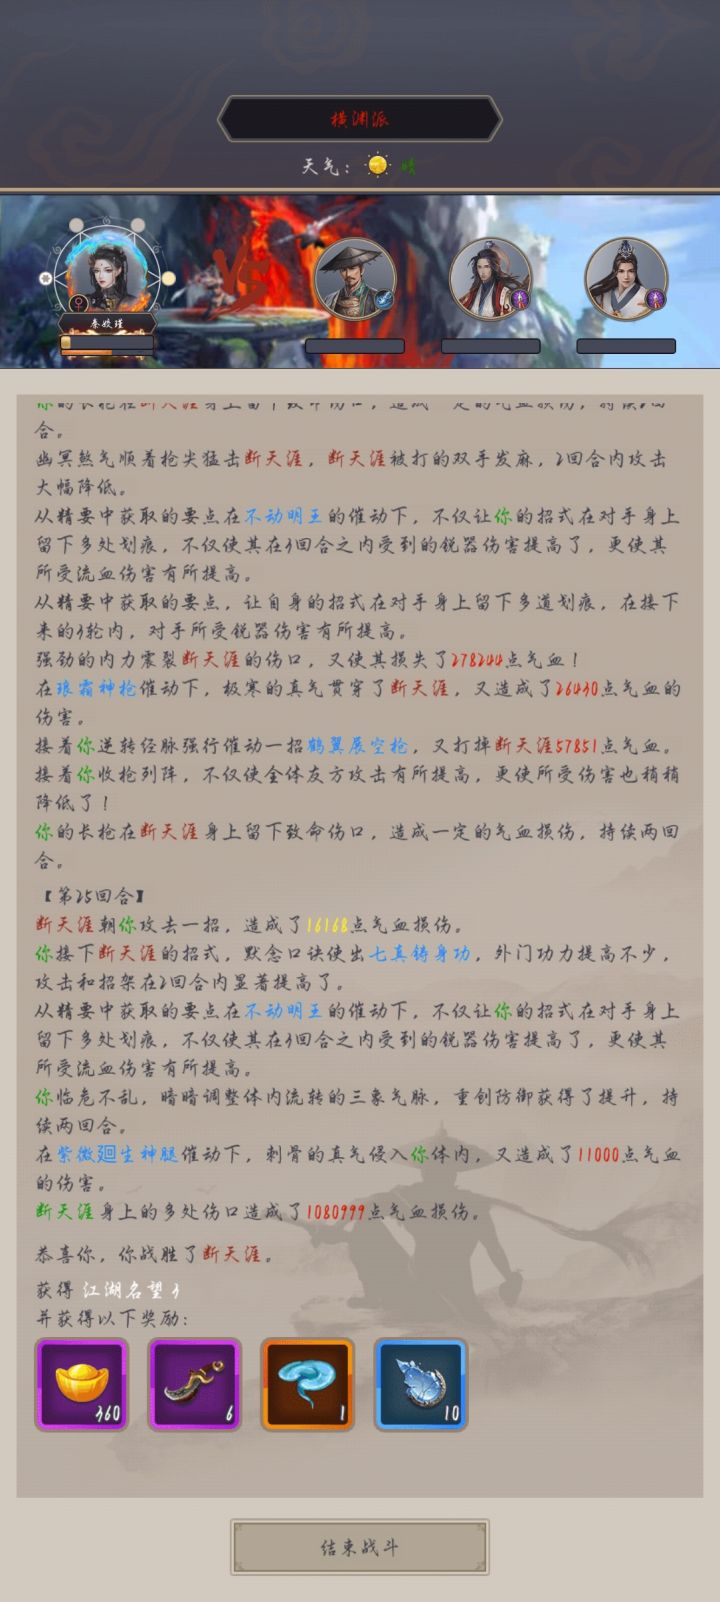 横渊派
天气：晴
VS
秦姣瑾
你的长枪在断天涯身上留下致命伤口，造成一定的气血损伤，持续2回
合。
幽冥煞气顺着枪尖猛击断天涯，断天涯被打的双手发麻，2回合内攻击
大幅降低。
从精要中获取的要点在不动明王的催动下，不仅让你的招式在对手身上
留下多处划痕，不仅使其在3回合之内受到的锐器伤害提高了，更使其
所受流血伤害有所提高。
从精要中获取的要点，让自身的招式在对手身上留下多道划痕，在接下
来的3轮内，对手所受锐器伤害有所提高。
强劲的内力震裂断天涯的伤口，又使其损失了278244点气血！
在琅霜神枪催动下，极寒的真气贯穿了断天涯，又造成了26430点气血的
伤害。
接着你逆转经脉强行催动一招鹤翼展空枪，又打掉断天涯57851点气血。
接着你收枪列阵，不仅使全体友方攻击有所提高，更使所受伤害也稍稍
降低了！
你的长枪在断天涯身上留下致命伤口，造成一定的气血损伤，持续两回
合。
【第25回合】
断天涯朝你攻去一招，造成了16168点气血损伤。
你接下断天涯的招式，默念口诀使出七真铸身功，外门功力提高不少，
攻击和招架在2回合内显著提高了。
从精要中获取的要点在不动明王的催动下，不仅让你的招式在对手身上
留下多处划痕，不仅使其在3回合之内受到的锐器伤害提高了，更使其
所受流血伤害有所提高。
你临危不乱，暗暗调整体内流转的三象气脉，重创防御获得了提升，持
续两回合。
在紫微廻生神腿催动下，刺骨的真气侵入你体内，又造成了11000点气血
的伤害。
断天涯身上的多处伤口造成了1080999点气血损伤。
恭喜你，你战胜了断天涯。
获得 江湖名望 3
并获得以下奖励：
360 6 1 10
结束战斗